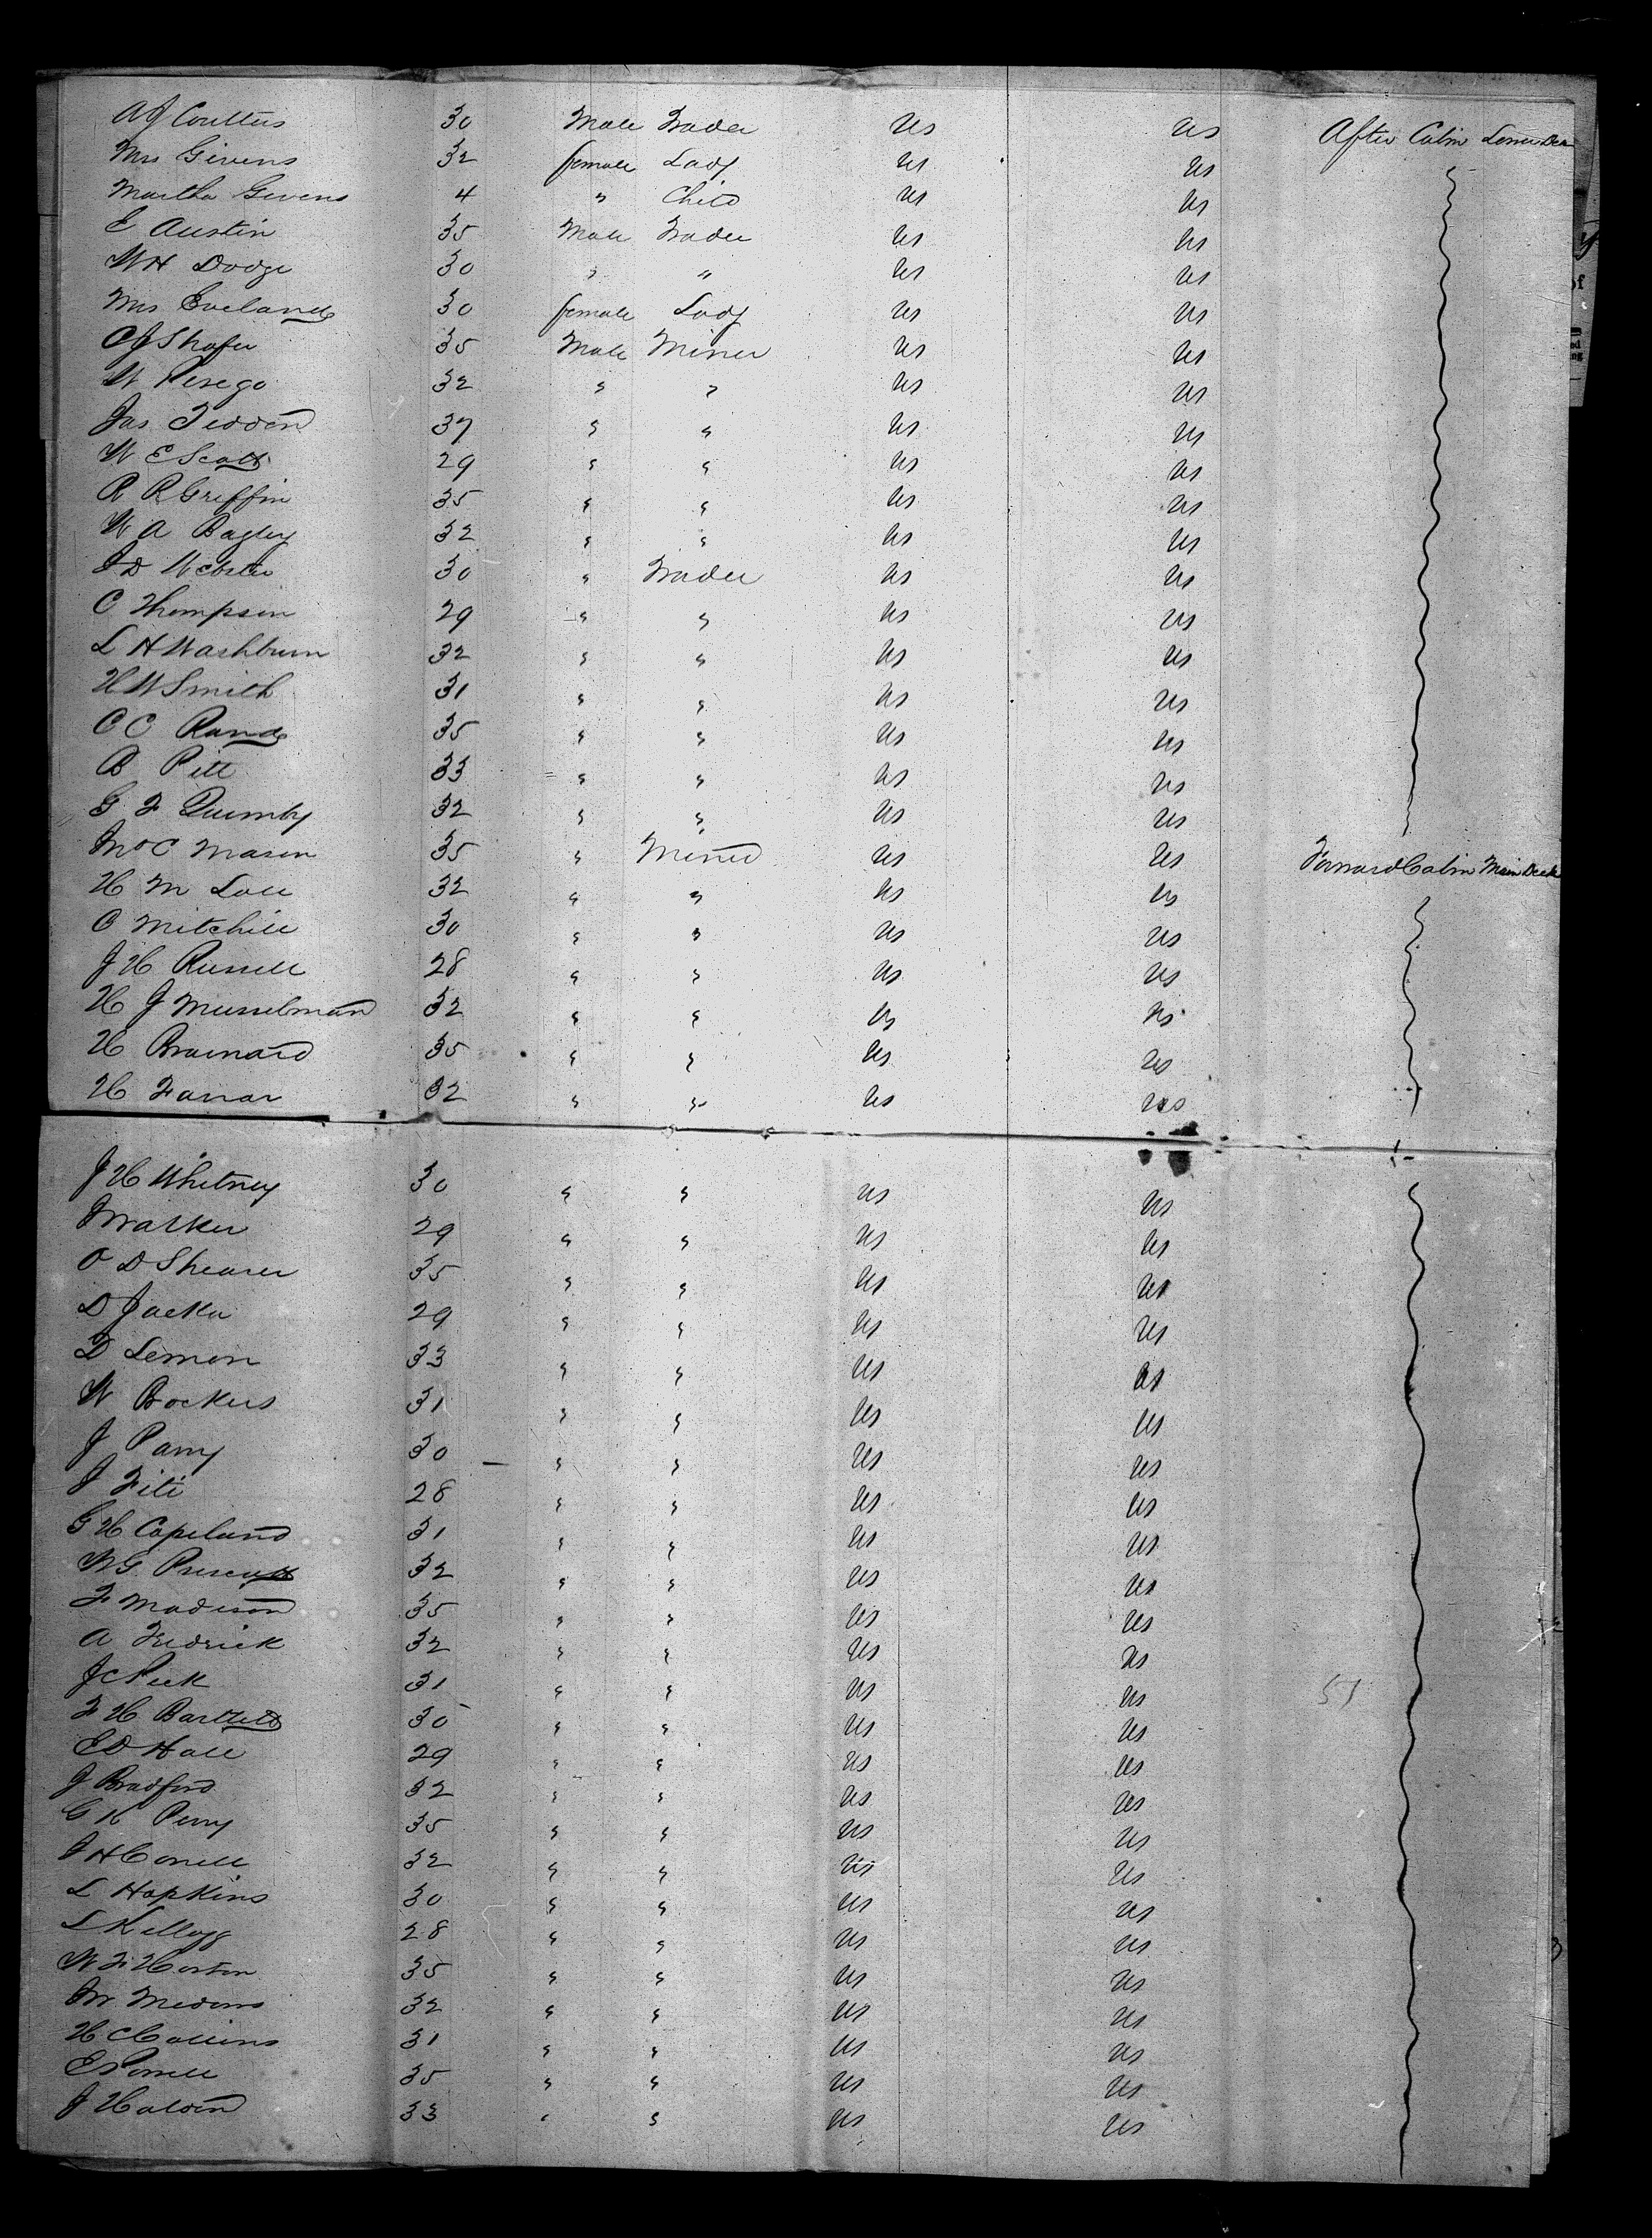 AJ Coulters 30 Male Trader US US After Cabin Lower Deck
Mrs Givens 32 female Lady US US
Martha Givens 4 " Child US US
E Austin 35 Male Trader US US
WH Dodge 30 " " US US
Mrs Eveland 30 female Lady US US
CJ Shafer 35 Male Miner US US
W Perego 32 " " US US
Jas Tedden 37 " " US US
W E Scott 29 " " US US
R R Griffin 35 " " US US
W A Bagley 32 " " US US
J D Webster 30 " Trader US US
C Thompson 29 " " US US
L H Washburn 32 " " US US
H W Smith 31 " " US US
C C Rand 35 " " US US
B Pitt 33 " " US US
G F Quimby 32 " " US US
McC Mason 35 " Miner US US Forward Cabin Main Deck
H M 32 " " US US
C Mitchill 30 " " US US
J H Russell 28 " " US US
H J Musselman 32 " " US US
H Brainard 35 " " US US
H Farrar 32 " " US US
J H Whitney 30 " " US US
J Walker 29 " " US US
O D Shearer 35 " " US US
D 29 " " US US
D Lemon 33 " " US US
W Bockus 31 " " US US
J Parry 30 " " US US
J 28 " " US US
G H Copeland 31 " " US US
W G Prescott 32 " " US US
F Madison 35 " " US US
A Fredrick 32 " " US US
J C Peek 31 " " US US
51
F H Bartlett 30 " " US US
E D Hall 29 " " US US
J Bradford 32 " " US US
G K Perry 35 " " US US
J H 32 " " US US
L Hopkins 30 " " US US
L Kellogg 28 " " US US
W F Horton 35 " " US US
32 " " US US
H C Collins 31 " " US US
E 35 " " US US
J Halden 33 " " US US